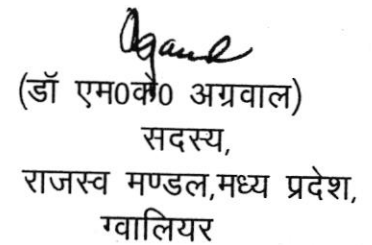 (डॉ एम0के0 अग्रवाल)
सदस्य,
राजस्व मण्डल,मध्य प्रदेश,
ग्वालियर